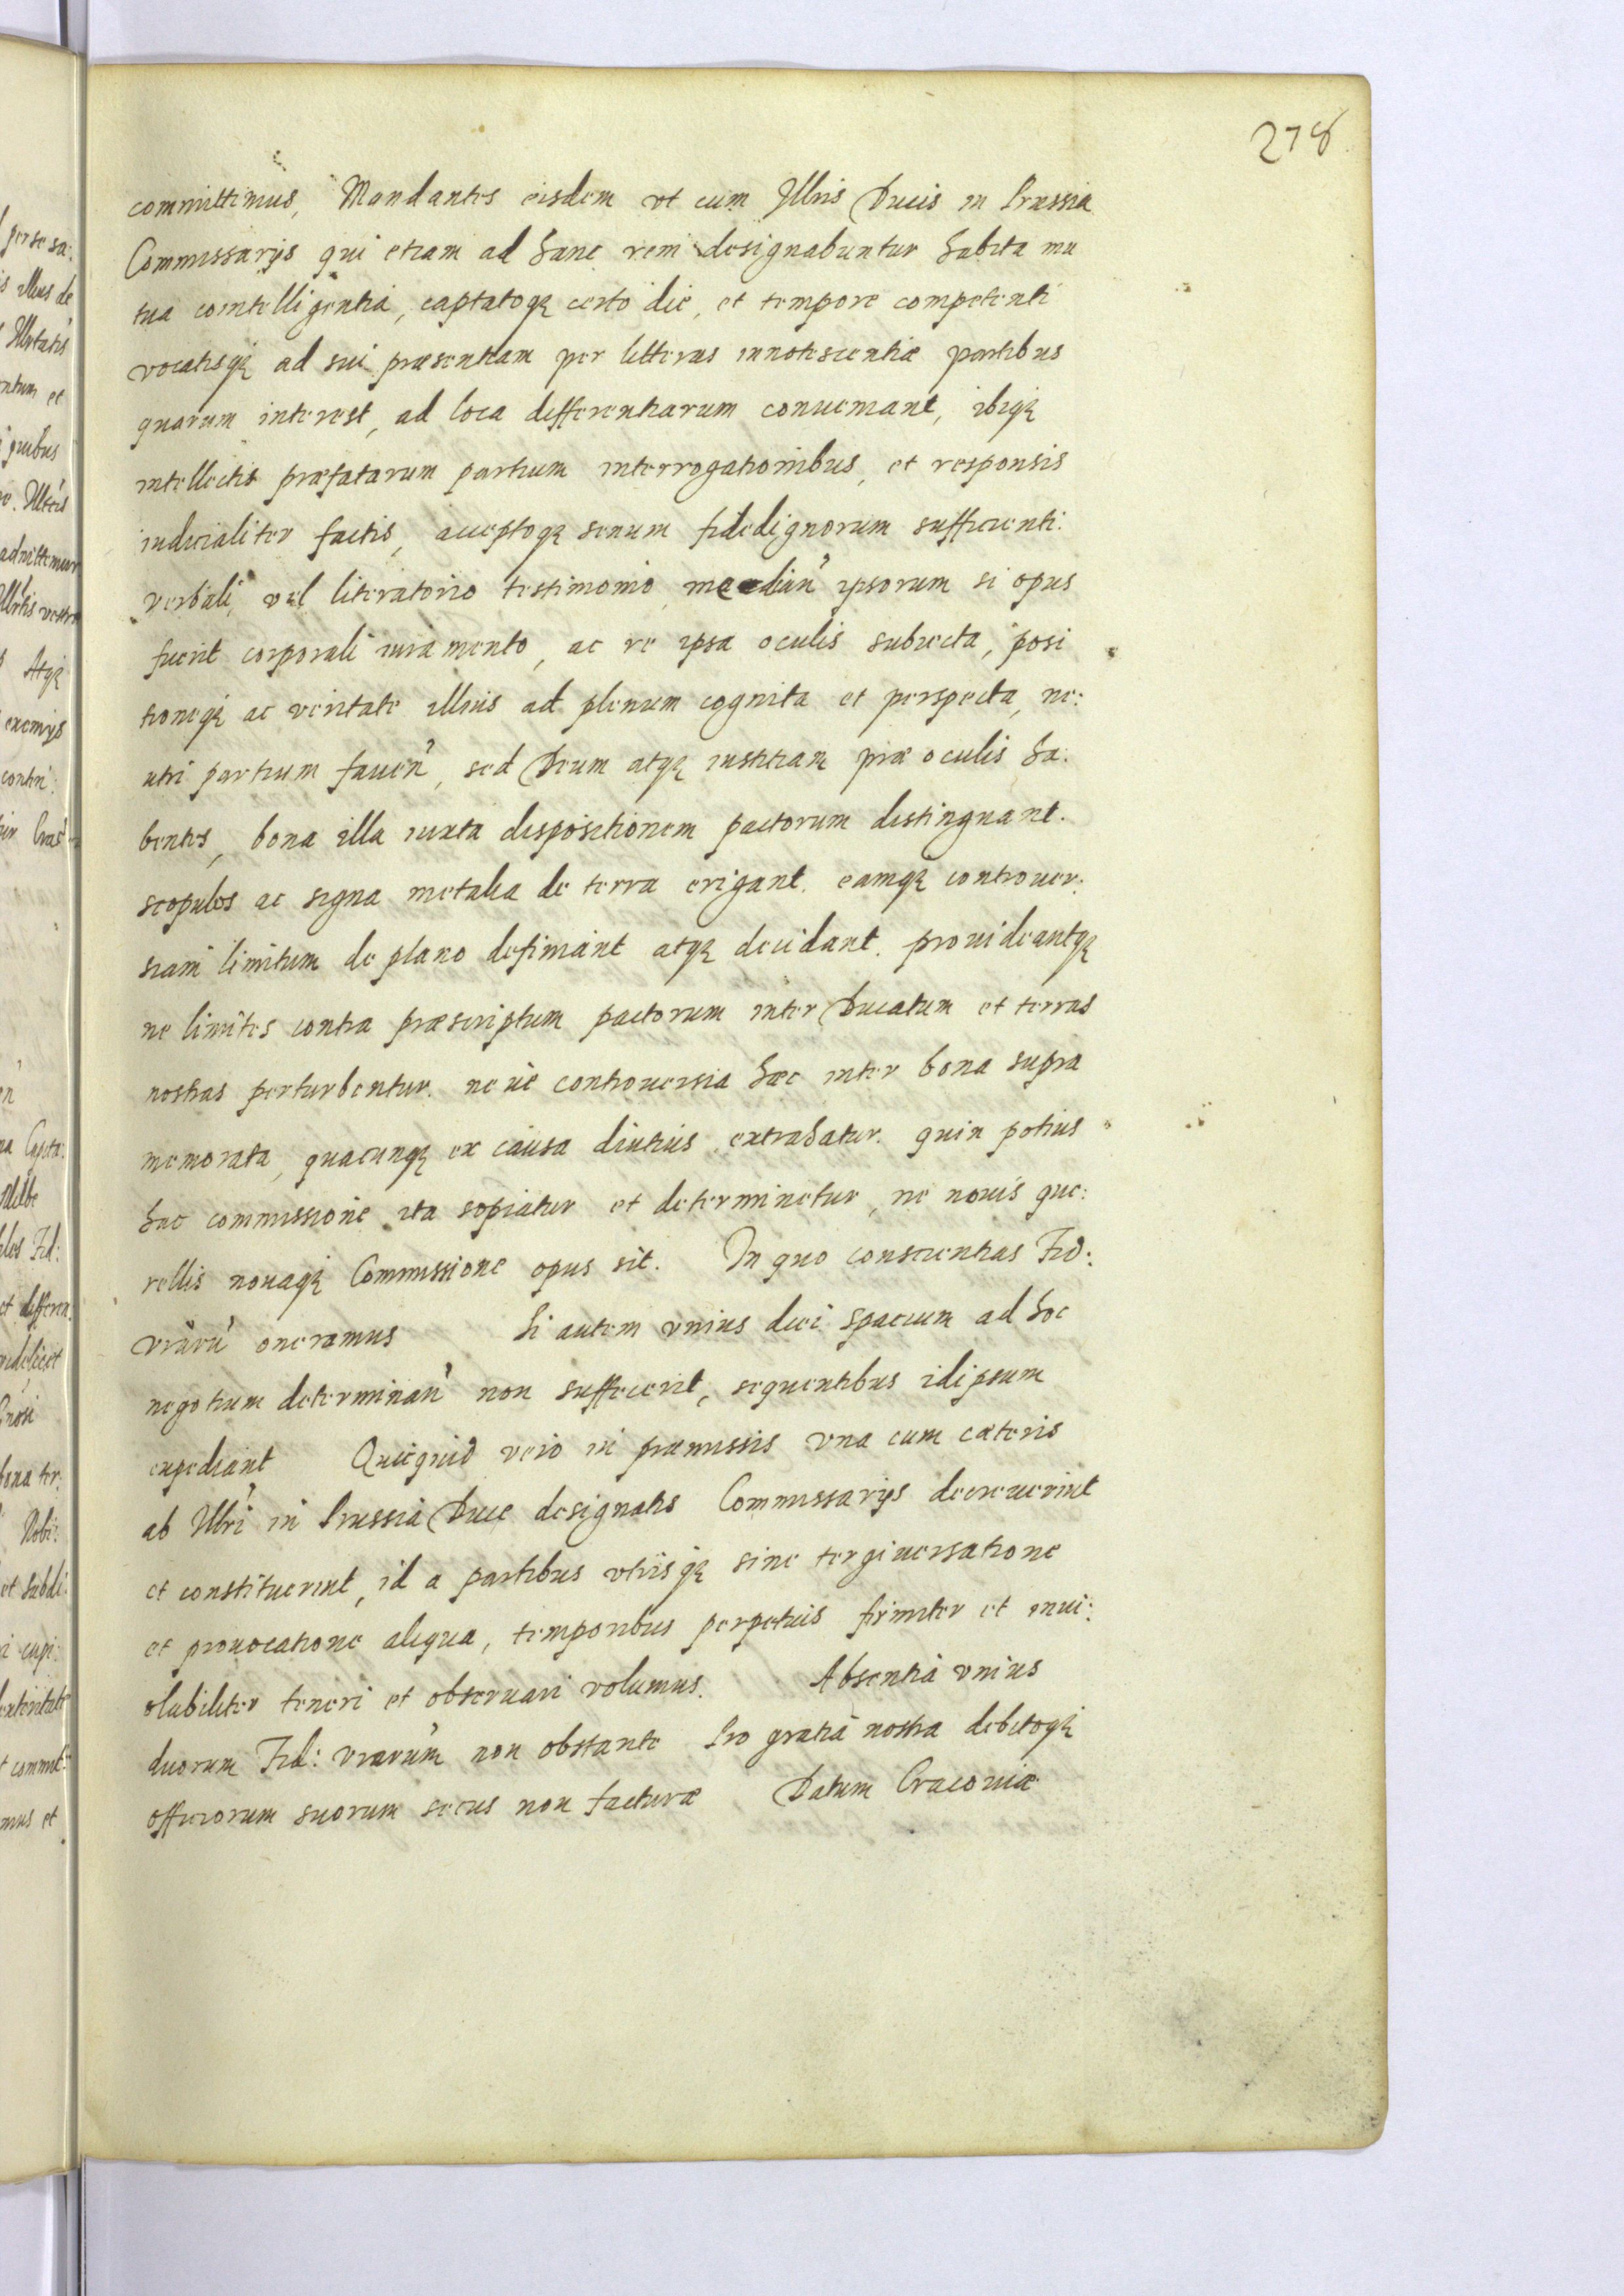 278
committimus, Mandantes eisdem vt cum Illris Ducis in Prussia
Commissarijs qui etiam ad hanc rem designabuntur habita mu
tua cointelligentia, captatoq₃ certo die, et tempore competenti
vocatisq₃ ad sui præsentiam per litteras innotescentiæ partibus
quarum interest, ad loca differentiarum conueniant, ibiq₃
intellectis præfatarum partium interrogationibus, et responsis
iudicialiter factis, acceptoq₃ senum fidedignorum sufficienti:
verbali, vel literatorio testimonio, median̄ ipsorum si opus
fuerit corporali iuramento, ac re ipsa oculis subiecta, posi
tioneq₃ ac veritate illius ad plenum cognita et perspecta, ne:
utri partium fauen̄, sed Deum atq₃ iustitiam præ oculis ha:
bentes, bona illa iuxta dispositionem pactorum distinguant.
scopulos ac signa metalia de terra erigant. eamq₃ controuer:
siam limitum de plano definiant atq₃ decidant. prouideantq₃
ne limites contra præscriptum pactorum inter Ducatum et terras
nostras perturbentur. ne ue controuersia hæc inter bona supra
memorata, quacunq₃ ex causa diutius extrahatur. quin potius
hac commissione ita sopiatur et determinetur, ne nouis que:
rellis nouaq₃ Commissione opus sit. In quo conscientias Fid:
vrarū oneramus Si autem vnius diei spacium ad hoc
negotium determinan̄ non suffecerit, sequentibus idipsum
expediant Quicquid vero in præmissis vna cum cæteris
ab Illri in Prussia Duce designatis Commissarijs decreuerint
et constituerint, id a partibus vtrisq₃ sine tergiuersatione
et prouocatione aliqua, temporibus perpetuis firmiter et inui:
olabiliter teneri et obseruari volumus. Absentia vnius
duorum Fid: vrarum non obstante Pro gratia nostra debitoq₃
officiorum suorum secus non facturæ Datum Cracouiæ